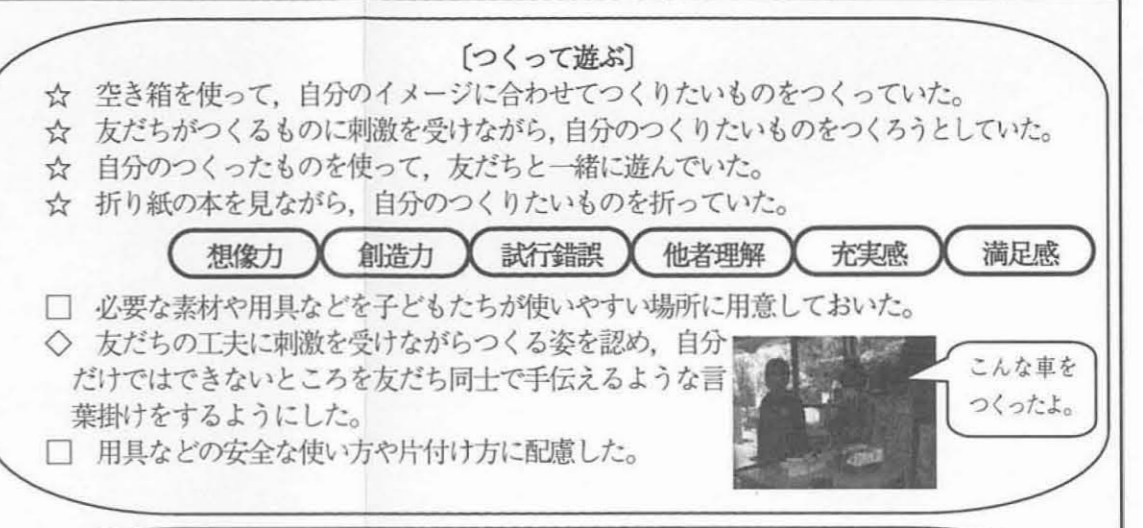 〔つくって遊ぶ〕
☆ 空き箱を使って，自分のイメージに合わせてつくりたいものをつくっていた。
☆ 友だちがつくるものに刺激を受けながら，自分のつくりたいものをつくろうとしていた。
☆ 自分のつくったものを使って，友だちと一緒に遊んでいた。
☆ 折り紙の本を見ながら，自分のつくりたいものを折っていた。
想像力 創造力 試行錯誤 他者理解 充実感 満足感
□ 必要な素材や用具などを子どもたちが使いやすい場所に用意しておいた。
◇ 友だちの工夫に刺激を受けながらつくる姿を認め，自分
だけではできないところを友だち同士で手伝えるような言
葉掛けをするようにした。
□ 用具などの安全な使い方や片付け方に配慮した。
こんな車を
つくったよ。